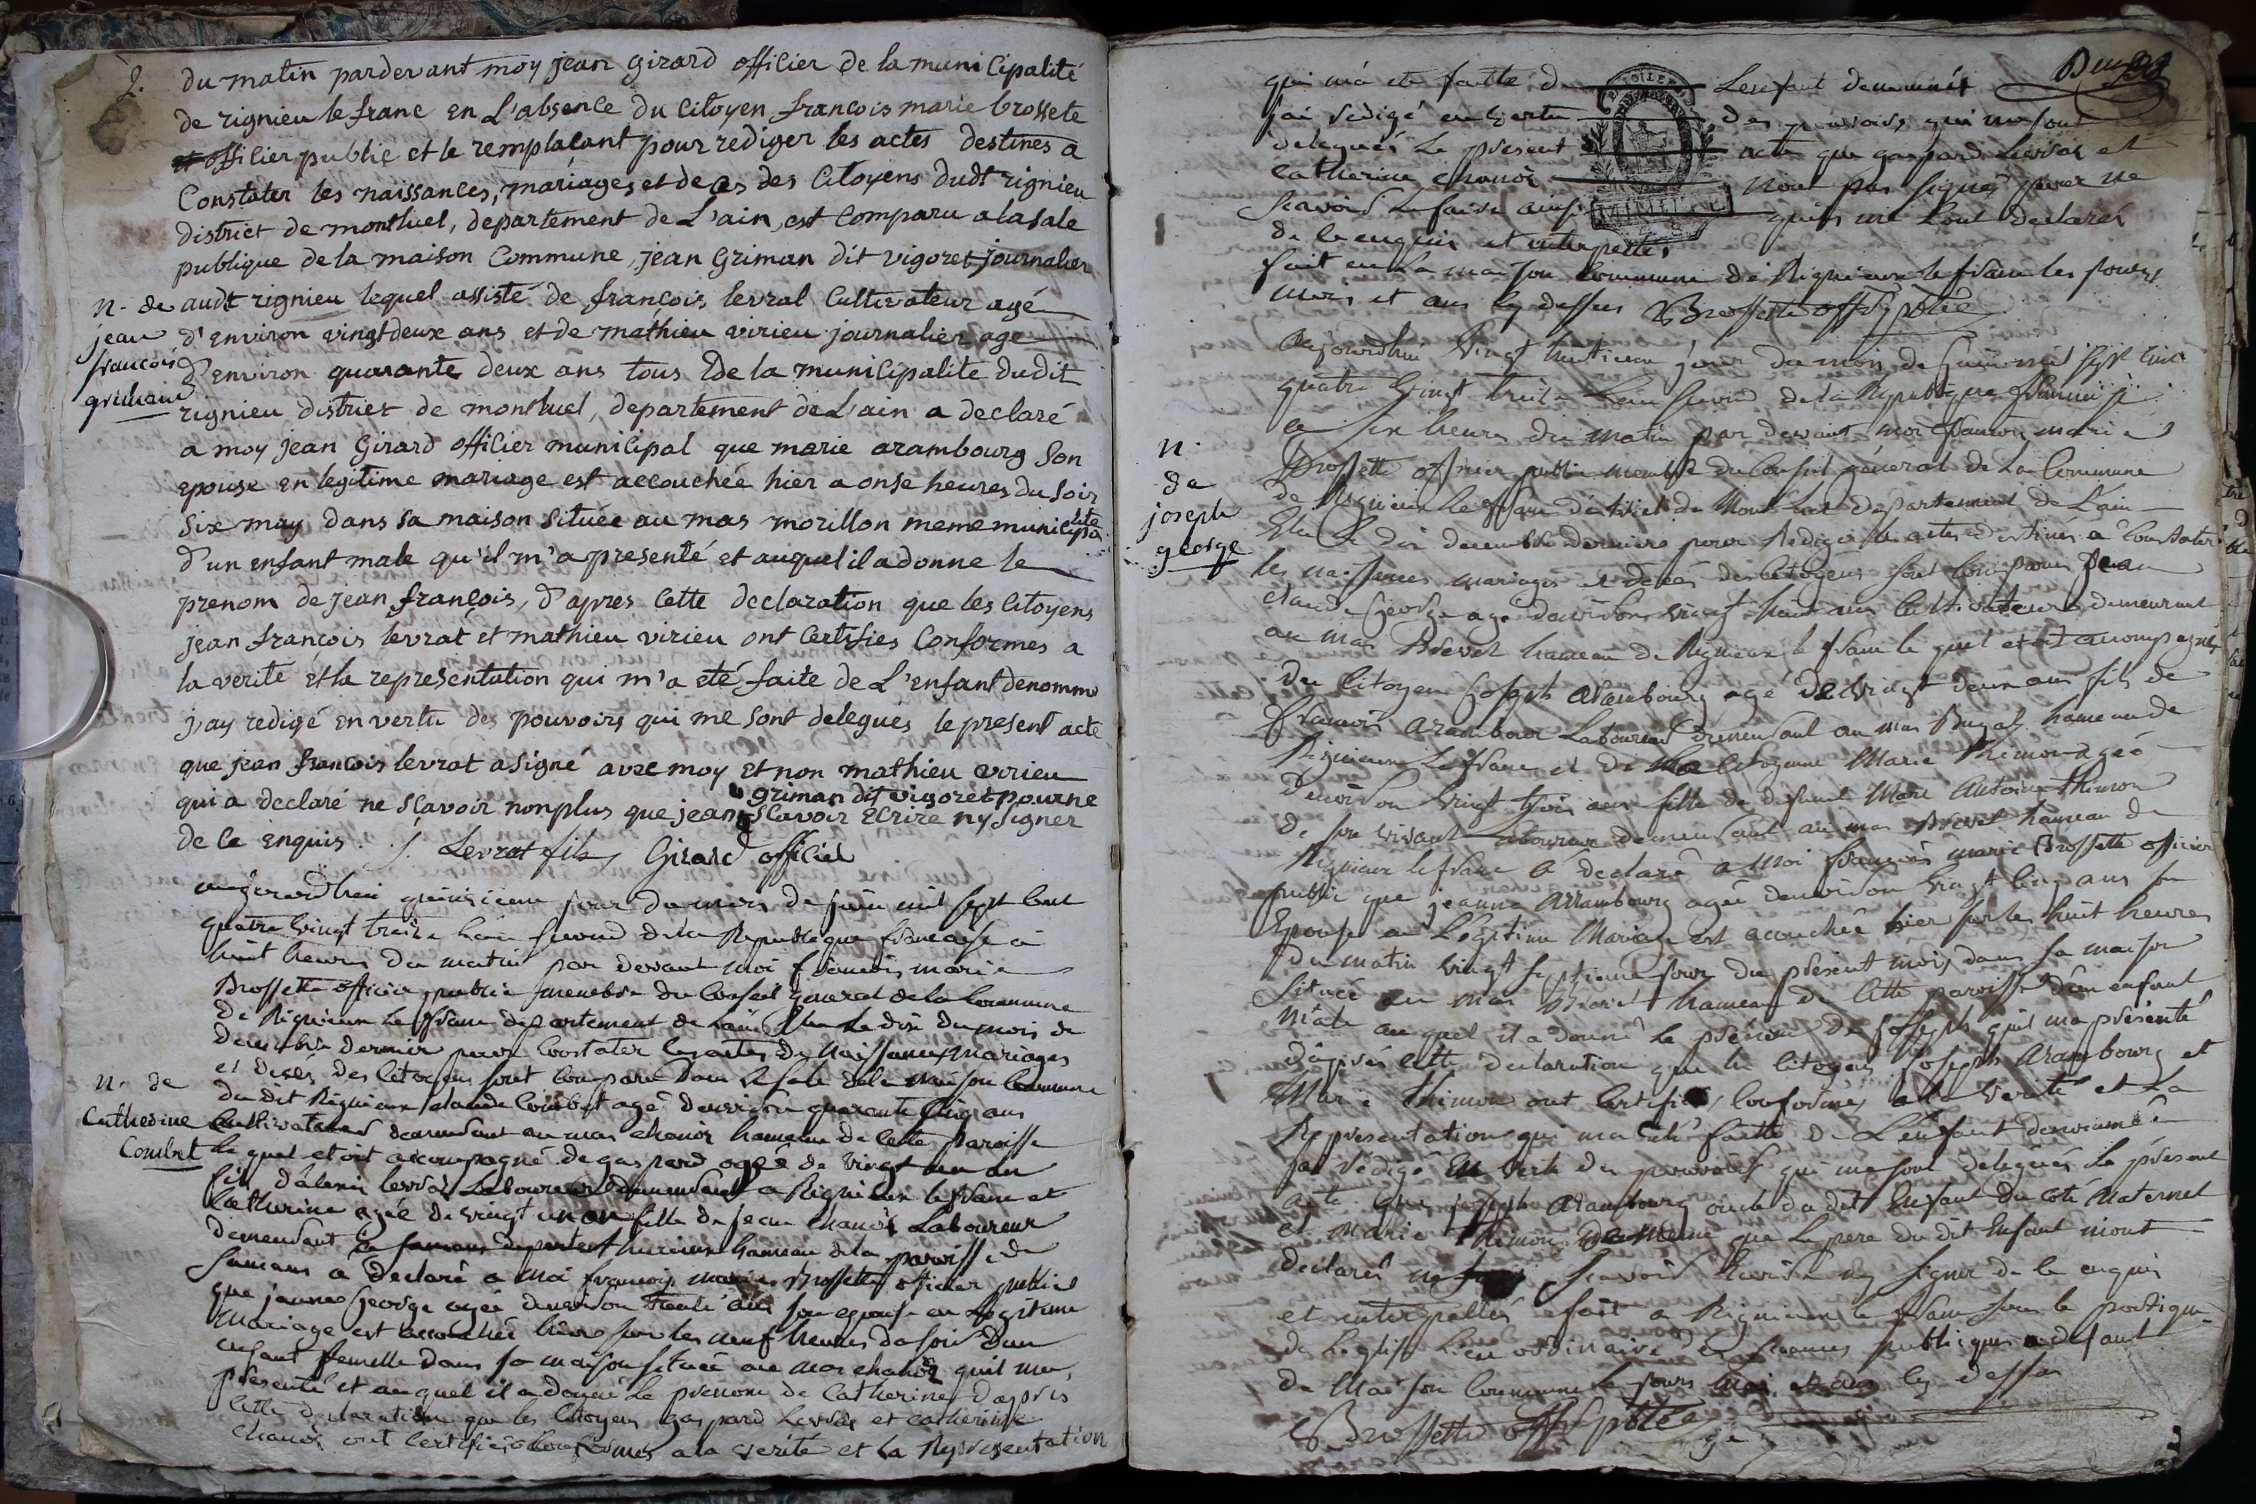 2.
du matin pardevant moy jean girard officier de la municipalité
de rignieu le franc en L'absence du Citoyen francois marie brossete
officier public et le remplacant pour rediger les actes destines a
Constater les naissances, mariages et deces des Citoyens dudt rignieu
district de montluel, departement de L'ain, est Comparu a la sale
publique de la maison Commune, jean Griman dit vigoret journalier
audt rignieu lequel assisté de francois levrat Cultivateur agé
d'environ vingt deux ans et de mathieu virieu journalier age
d'environ quarante deux ans tous 2 de la municipalite dudit
rignieu district de montluel, departement de L'ain a declaré
a moy jean Girard officier municipal que marie arambourg son
epouse en legitime mariage est accouchée hier a onse heures du soir
six may dans sa maison située au mas morillon meme municipalite
d'un enfant male qu'il m'a presenté et auquel il a donne le
prenom de jean françois, d'apres Cette declaration que les Citoyens
jean francois levrat et mathieu virieu ont Certifies Conformes a
la verite et la representation qui m'a eté faite de L'enfant denommé
j'ay redigé en vertu des pouvoirs qui me sont delegués le present acte
que jean francois levrat a signé avec moy et non mathieu virieu
qui a declaré ne scavoir non plus que jean griman dit vigoret pour ne
scavoir Ecrire ny signer
de Ce enquis. J. Levrat fils Girard officier
n. de
jean
francois
grimand
aujourdhui quinzieme jour du mois de juin mil sept cent
quatre vingt treize L'an second de la Republique francaise à
huit heures du matin par devant moi francois marie
Brossette officier public membre du Conseil general de la Commune
de Rignieux le franc departement de L'ain Elu Le dix du mois de
decembre dernier pour Constater les actes de Naissances Mariages
et décés des Citoyens sont Comparu dans la sale de la maison Commune
du dit Rignieux Claude Combet agé d'environ quarante Cinq ans
Cultivateur demeurant au mas chanoz hameau de Cette paroisse
le quel etoit accompagné de gaspard agée de vingt un an
fils d'alexis levrat Laboureur demeurant a Rignieux le franc et
Catherine agée de vingt un an fille de jean chanoz Laboureur
demeurant hameau de la paroisse de
a declaré a moi francois marie Brossette officier public
que jeanne George agée d'environ trente ans son epouse en Legitime
Mariage est accouchée hier sur les neuf heures du soir d'un
enfant femelle dans sa maison située au mas chanoz quil me
presenté et auquel il a donné Le prenom de Catherine d'apris
Cette declaration que les Citoyens gaspard Levrat et Catherine
Chanoz ont Certifiés Conformes a la verité et la Representation
n. de
Catherine
Combet
qui m'a ete faitte de Lenfant denommé
j'ai redigé en vertu des pouvoirs qui me sont
delegués Le present acte que gaspard Levrat et
Catherine chanoz nont pas signés pour ne
Scavoir Le faire ainsi quils me Lont declarés
de le enquis et interpellés
fait en La maison Commune de Rignieux le franc les jours
mois et ans Cy dessus Brossette off. pblic
Aujourdhui Vingt huitieme jour du mois de juin mil sept Cent
quatre Vingt treize Lan second de la Republique francaise
a six heures du matin par devant moi francois marie
Brossette officier public membre du Conseil général de la Commune
de Rignieux Le franc district de Montluel departement de Lain
Elu Le dix decembre dernier pour Rediger les actes destinés a Constater
les naissances mariages et décés des Citoyens sont Comparus Jean
Claude George agé d'environ vingt huit ans Cultivateur demeurant
au mas Brevet hameau de Rignieux le franc le quel etoit accompagné
du Citoyen Joseph arambourg agé de vingt deux ans fils de
francois arambour Laboureur demeurant au mas hameau de
Rignieux Le franc et de La Citoyenne Marie Thimon agée
d'environ vingt trois ans fille de defunt Marc Antoine Thimon
de son vivant Laboureur demeurant au mas Brevet hameau de
Rignieux le franc a declaré a moi françois marie Brossette officier
public que jeanne Arambourg agée d'environ vingt Cinq ans son
Epouse en Légitime Mariage est accouchée hier sur les huit heures
du matin vingt septieme jour du présent mois dans sa maison
Située au mas Brevet hameau de Cette paroisse d'un enfant
Mâle au quel il a donné Le prénom de Joseph quil ma présenté
d'après Cette declaration que les Citoyens Joseph Arambourg et
Marie Thimon ont Certifiés Conformes a la Verité et La
Représentation qui ma été faitte de L'enfant denommé
j'ai rédigé en vertu des pouvoirs qui me sont délegués Le présent
acte que joseph Arambourg oncle du dit Enfant du coté Maternel
et Marie Thimon de Meme que Le pere du dit Enfant m'ont
declarés ne Scavoir Ecrire ny signer de le enquis
et interpellés fait a Rignieux le franc sous le portique
de Leglise Lieu ordinaire des séances publiques a defaut
de Maison Commune Le jours mois et an Cy dessus
Brossette off. pblic
n.
de
joseph
george